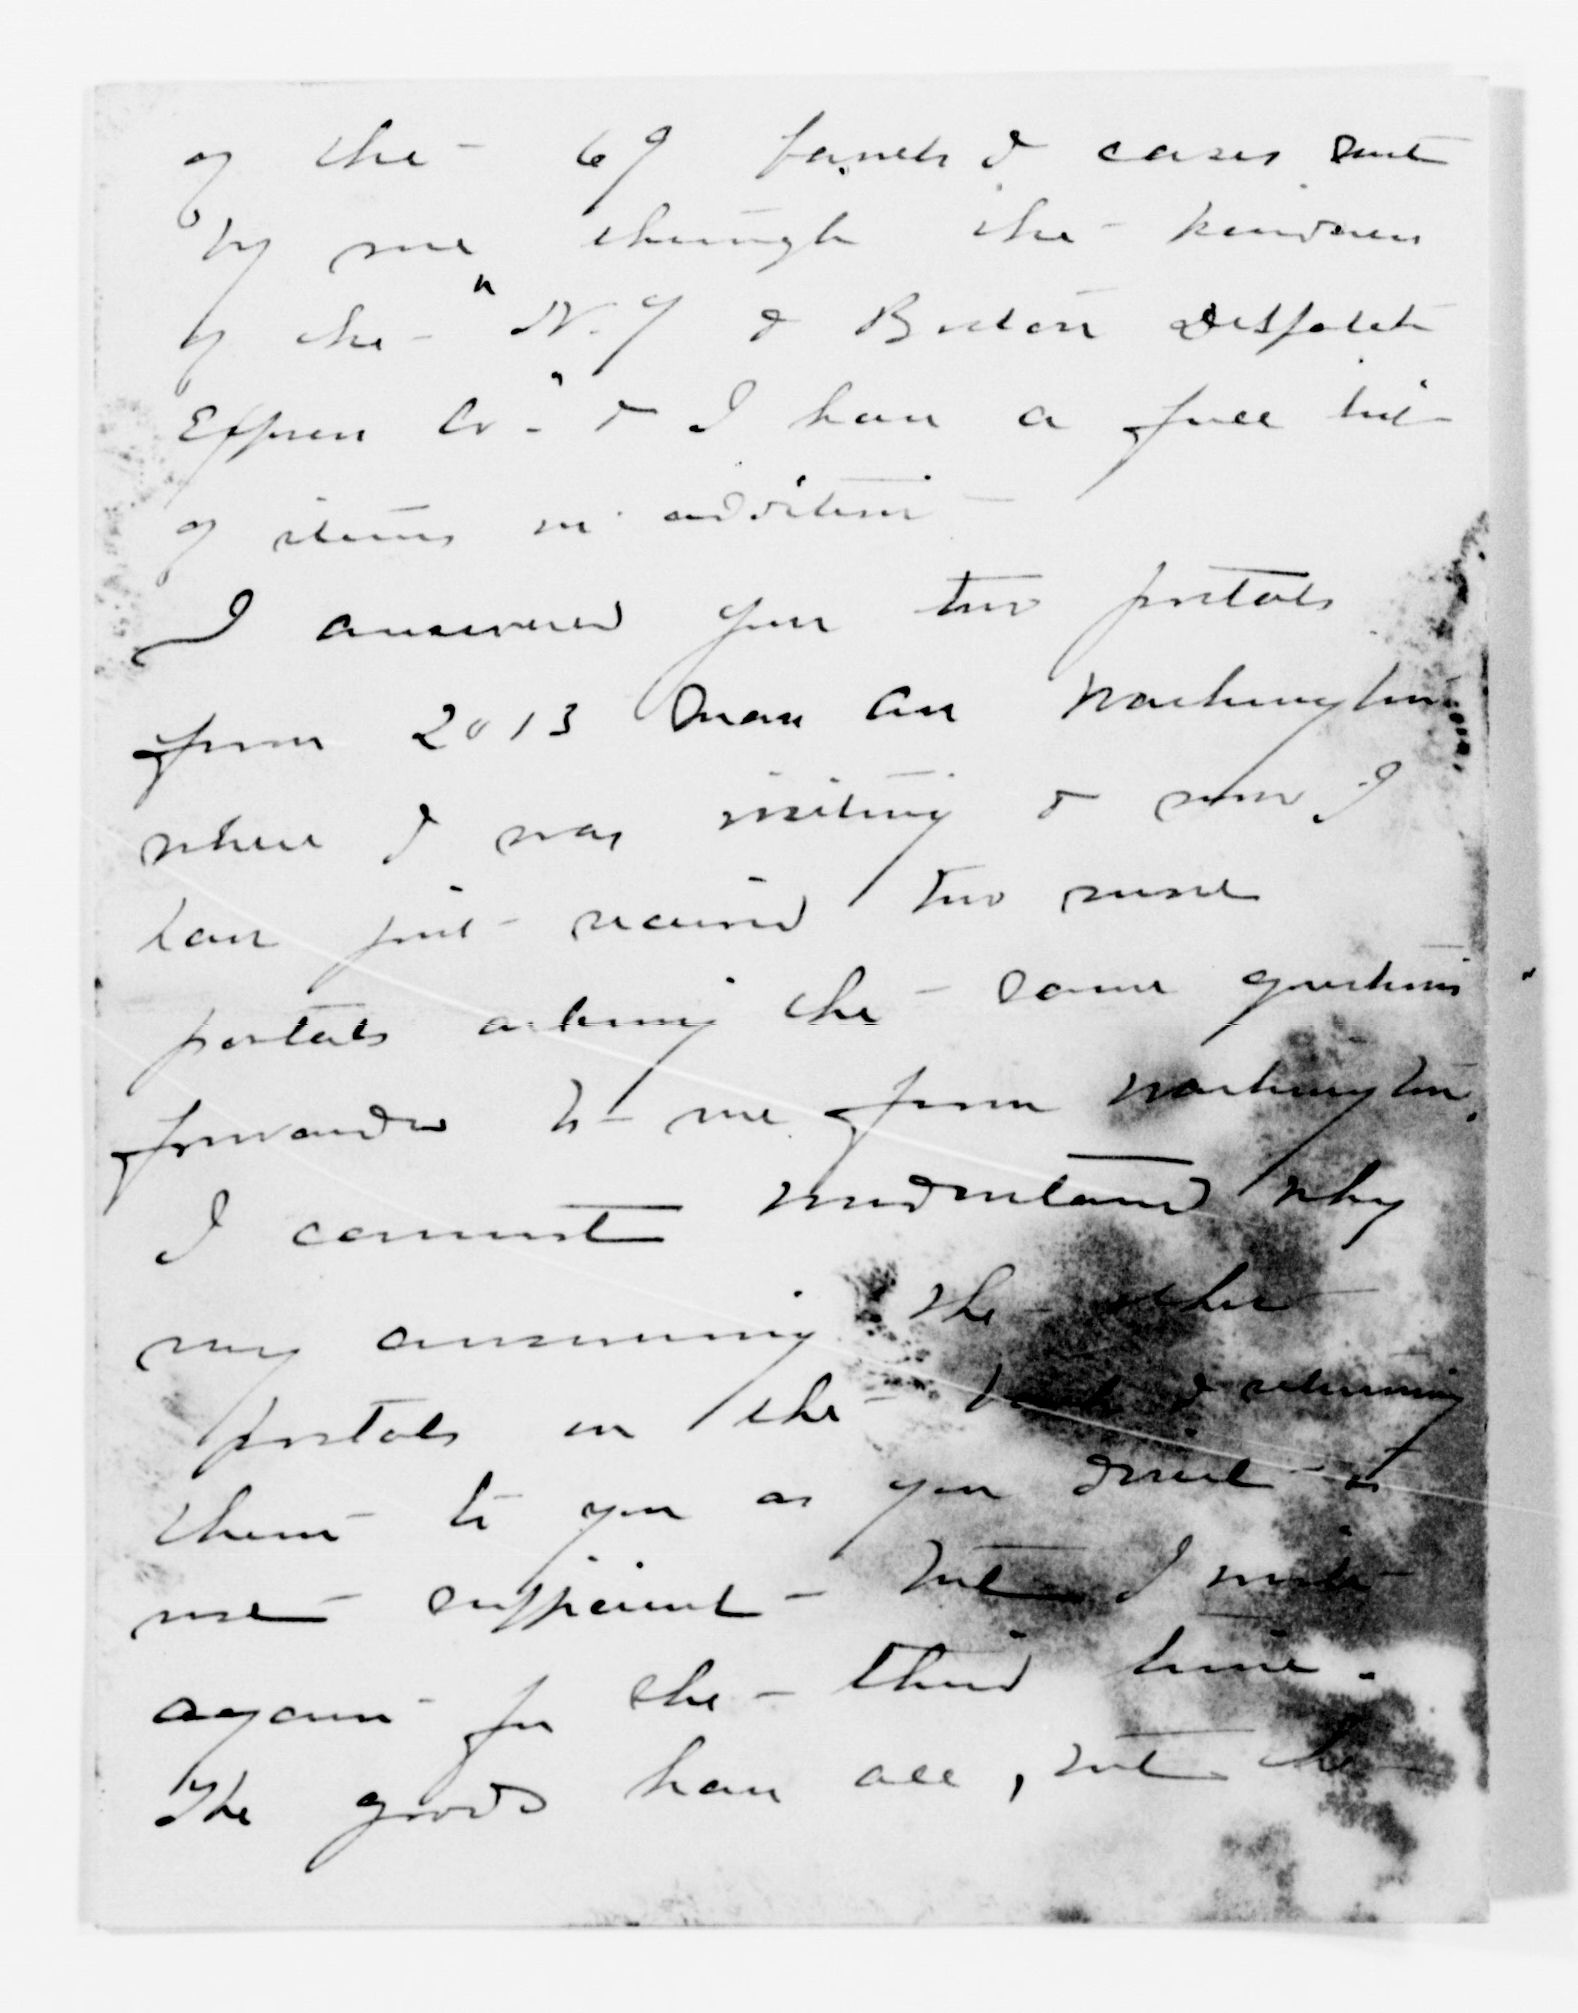 of the 69 barrels & cases sent
by me through the kindness
of the "N.Y & Boston Despatch
Express Co." & I have a full list
of items in addition
I answered your two postals
from 2013 Mass Ave Washington
where I was visiting & now I
have just received two more
postals asking the same questions
forwarded to me from Washington.
I cannot understand why
my answering the other
postals on the back & returning
them to you as you direct is
not sufficient - but I write
again for the third time.
The goods have all, not the